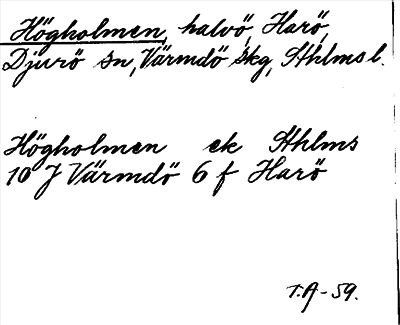 Högholmen, halvö, Harö,
Djurö sn, Värmdö skg, Sthlms l.
Högholmen ek Sthlms
10 J Värmdö 6 f Harö
T.A-59.